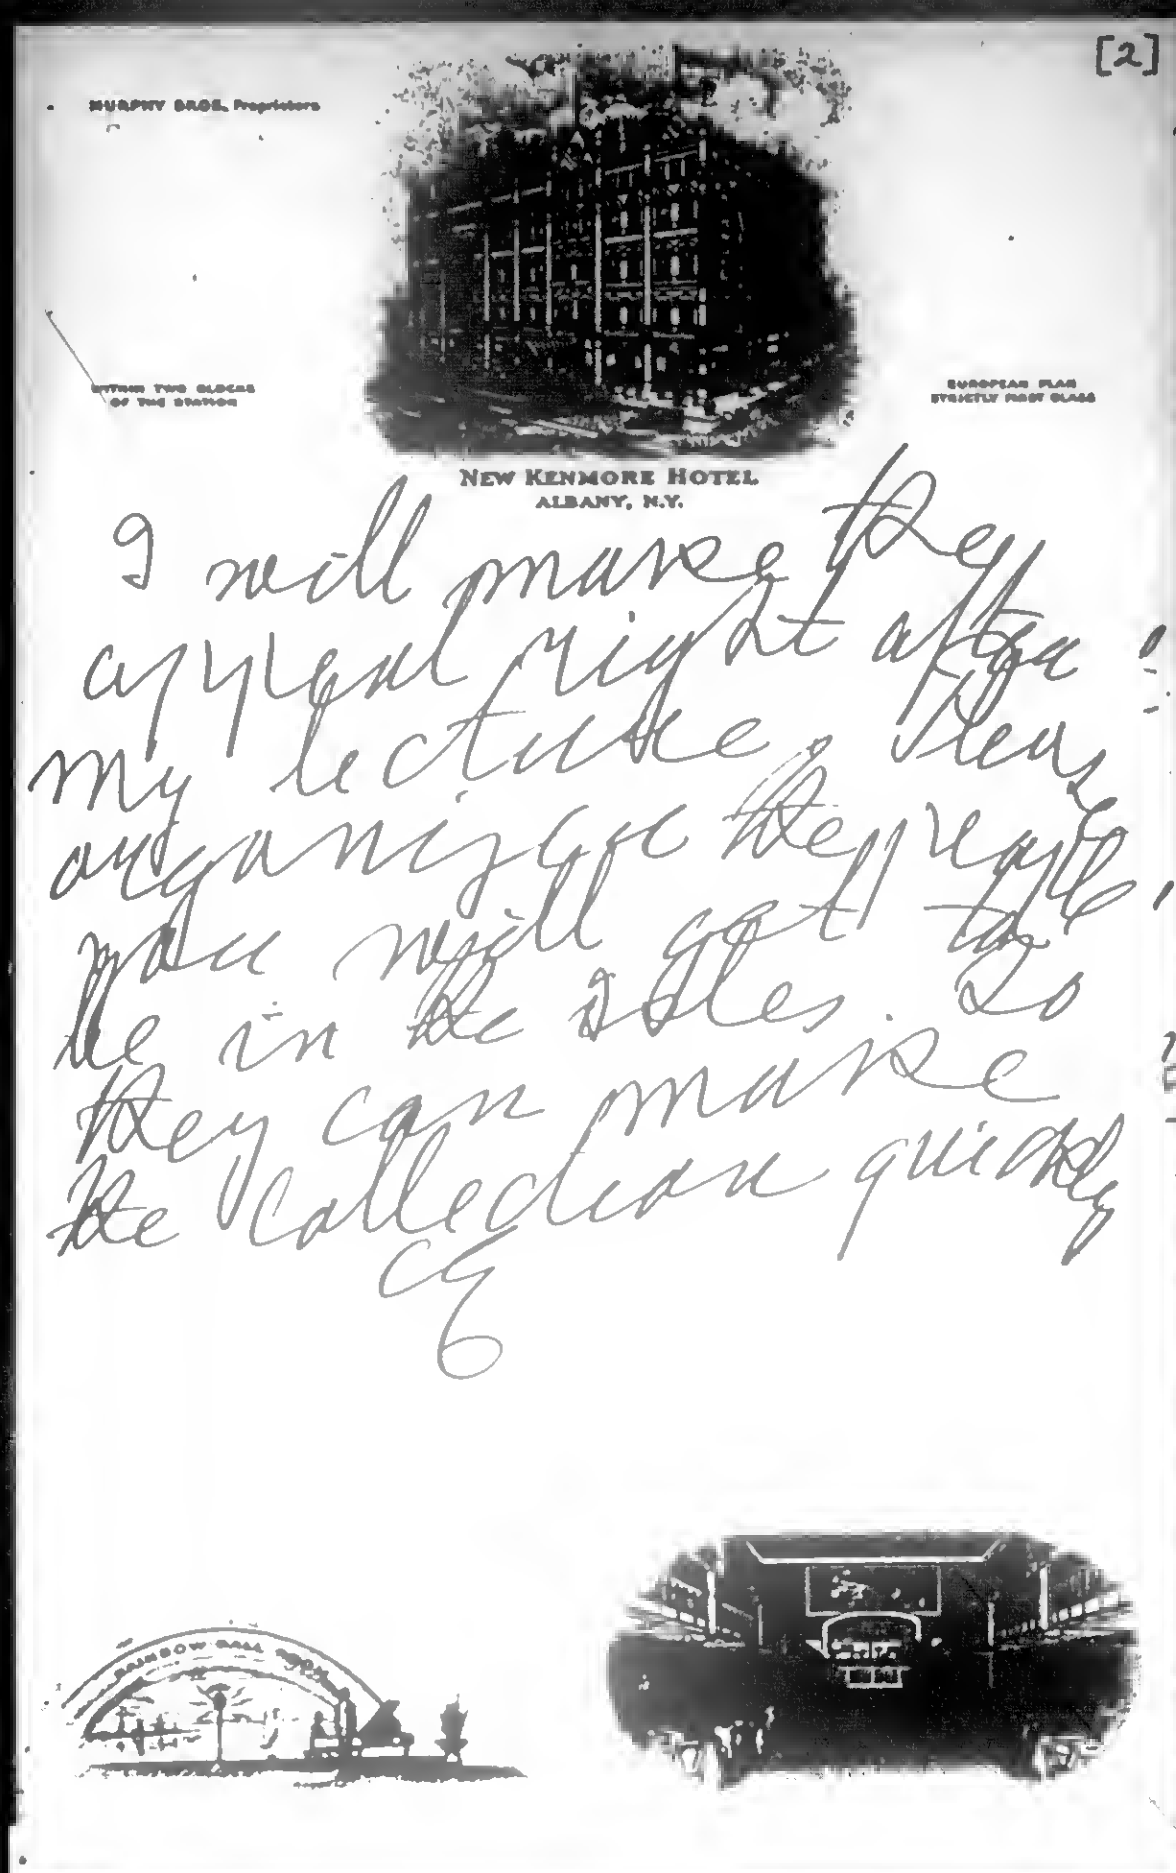 [2]
MURPHY BROS. Proprietors
WITHIN TWO BLOCKS
OF THE STATION
EUROPEAN PLAN
STRICTLY FIRST CLASS
NEW KENMORE HOTEL
ALBANY, N.Y.
I will make the
appeal right after
my lecture. Please
organize the people
you will get to
be in the isles. So
they can make
the collection quickly
RAINBOW BALL ROOM